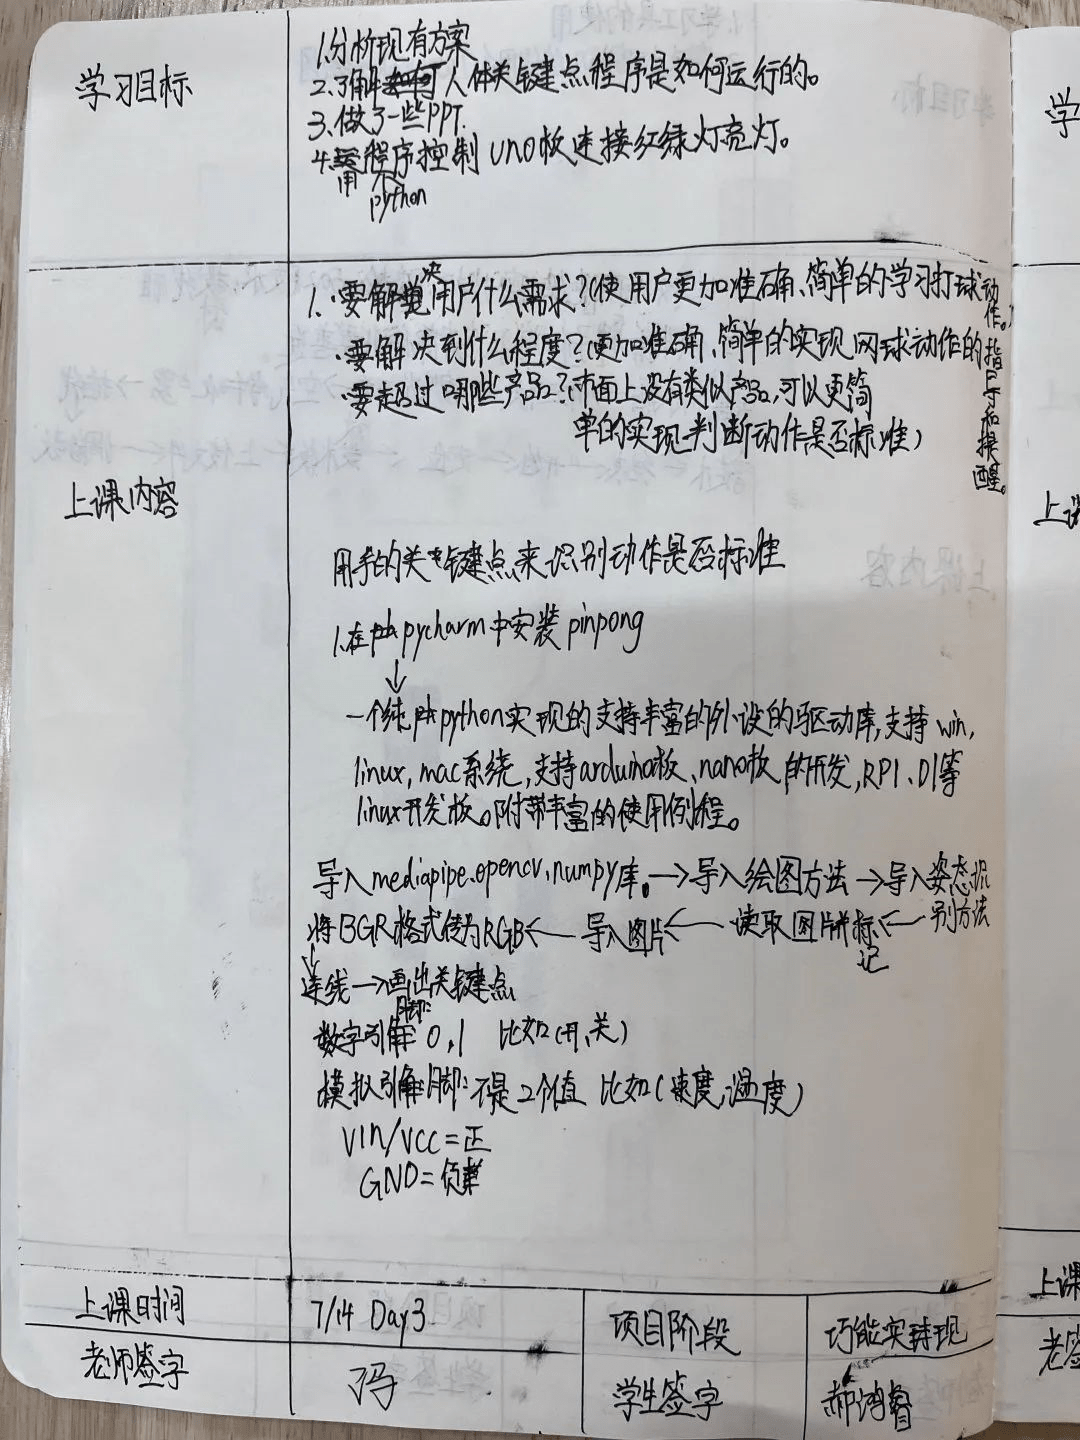 学习目标
1.分析现有方案
2.了解人体关键点程序是如何运行的。
3.做了一些PPT.
4.用python程序控制uno板连接红绿灯亮灯。
上课内容
1.·要解决用户什么需求?(使用户更加准确、简单的学习打球动作。)
·要解决到什么程度?(更加准确、简单的实现网球动作的指导和提醒。
·要超过哪些产品?(市面上没有类似产品,可以更简
单的实现判断动作是否标准)
用手的关键点来识别动作是否标准
1.在pycharm中安装pinpong
↓
一个纯python实现的支持丰富的外设的驱动库,支持win,
linux,mac系统,支持arduino板、nano板的开发,RPI、D1等
linux开发板。附带丰富的使用例程。
导入mediapipe.opencv.numpy库。→导入绘图方法→导入姿态识别方法
将BGR格式转为RGB←导入图片←读取图片并标记←
↓
连线→画出关键点
数字引脚:0,1 比如(开、关)
模拟引脚:不是2个值 比如(速度,温度)
VIN/VCC=正
GND=负
上课时间 7/14 Day3 项目阶段 功能实现
老师签字 冯 学生签字 郝鸿睿
学
上课
上课
老